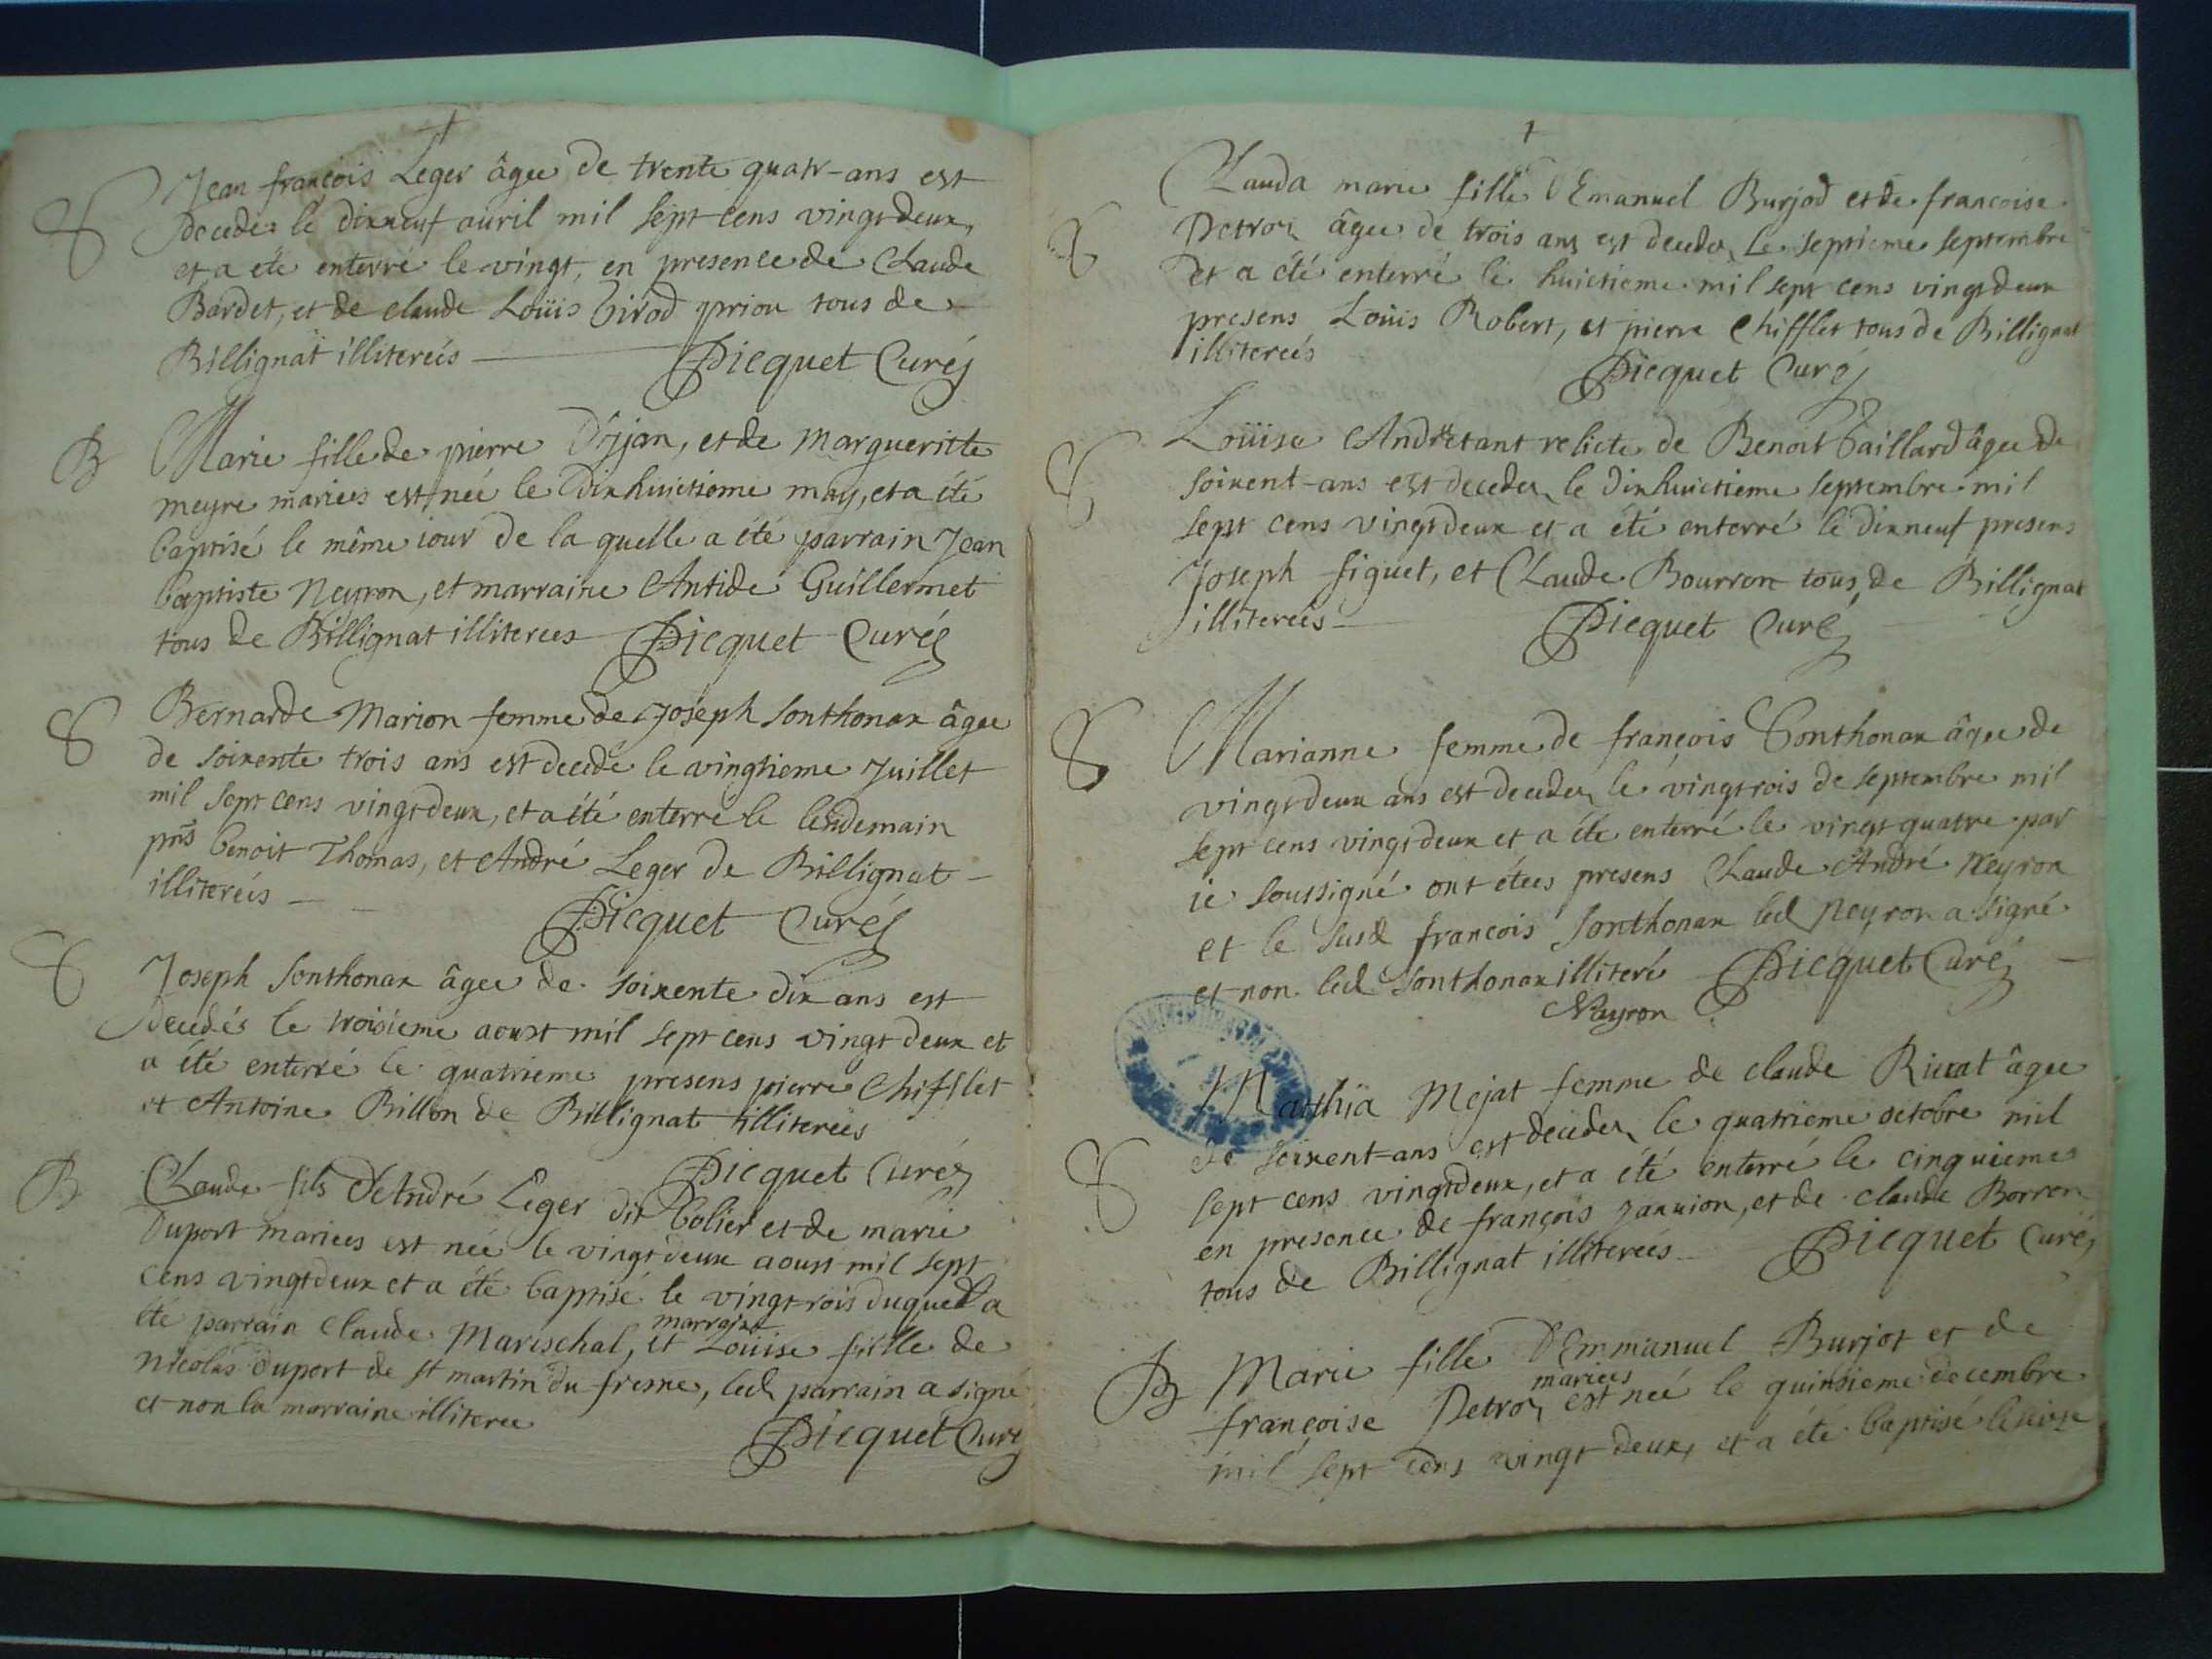 Jean françois Leger âgee de trente quatr-ans est
S decedez le dixneuf auril mil sept cens vingt deux,
et a eté enterré le vingt, en presence de Claude
Bardet, et de claude Loüis Girod priou tous de
Billignat illitereés
Picquet Curéz
B Marie fille de pierre et de Margueritte
meyre mariees est neé le dixhuictieme may, et a été
baptisé le même iour de la quelle a été parrain Jean
baptiste Neyron, et marraine Antide Guillermet
tous de Billignat illiterees Picquet Curéz
S Bernarde Marion femme de Joseph Sonthonax âgee
de soixente trois ans est decedé le vingtieme Juillet
mil sept cens vingt deux, et a été enterré le lendemain
pns benoit Thomas, et André Leger de Billignat
illitereés
Picquet Curéz
S Joseph Sonthonax âgee de soixente dix ans est
decedés le troisieme aoust mil sept cens vingt deux et
a été enterré le quatrieme presens pierre Chifflet
et Antoine Billon de Billignat illitereés
Picquet Curéz
B Claude fils d'André Leger dit Colier et de marie
Duport mariees est neé le vingt deux aoust mil sept
cens vingt deux et a été baptisé le vingt rois duquel a
été parrain Claude Marischal, et marraine Loüise fille de
Nicolas Duport de st martin du fresne, led parrain a signé
et non la marraine illiteree
Picquet Curéz
Clauda marie fille d'Emanuel Burjod et de francoise
S Detroz âgee de trois ans est decedez le septieme septembre
et a été enterré le huictieme mil sept cens vingt deux
presens Loüis Robert, et pierre Chifflet tous de Billignat
illitereés
Picquet Curéz
S Loüise Andrétant relicte de Benoit Gaillard âgee de
soixent-ans est decedez le dixhuictieme septembre mil
sept cens vingt deux et a été enterré le dixneuf presens
Joseph figuet, et Claude Bourron tous de Billignat
illitereés
Picquet Curéz
S Marianne femme de françois Sonthonax âgee de
vingt deux ans est decedez le vingt rois de septembre mil
sept cens vingt deux et a été enterré le vingt quatre par
ie soussigné ont éteés presens Claude André Neyron
et le susd francois Sonthonax led Neyron a signé
et non led Sonthonax illiteré Picquet Curéz
Nayron
Matthïa Mejat femme de claude Rieat âgee
S de soixent-ans est decedez le quatrieme octobre mil
sept cens vingt deux, et a été enterré le cinquieme
en presence de françois et de claude Borron
tous de Billignat illitereés Picquet Curéz
B Marie fille d'Emmanuel Burjot et de
françoise Detroz mariees est neé le quinsieme decembre
mil sept cens vingt deux, et a été baptisé le seize